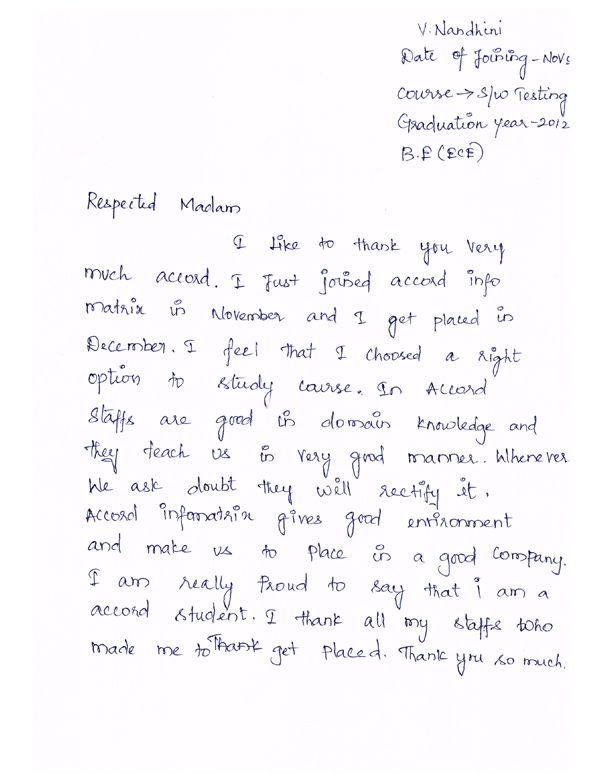 V. Nandhini
Date of Joining - Nov
Course → S/W Testing
Graduation year - 2012
B.E (ECE)
Respected Madam
I Like to thank you very
much accord. I Just joined accord info
matrix in November and I get placed in
December. I feel that I choosed a right
option to study course. In Accord
Staffs are good in domain knowledge and
they teach us in very good manner. Whenever
We ask doubt they will rectify it.
Accord infomatrix gives good entironment
and make us to place in a good Company.
I am really Proud to say that i am a
accord student. I thank all my staffs who
made me to Thank get placed. Thank you so much.